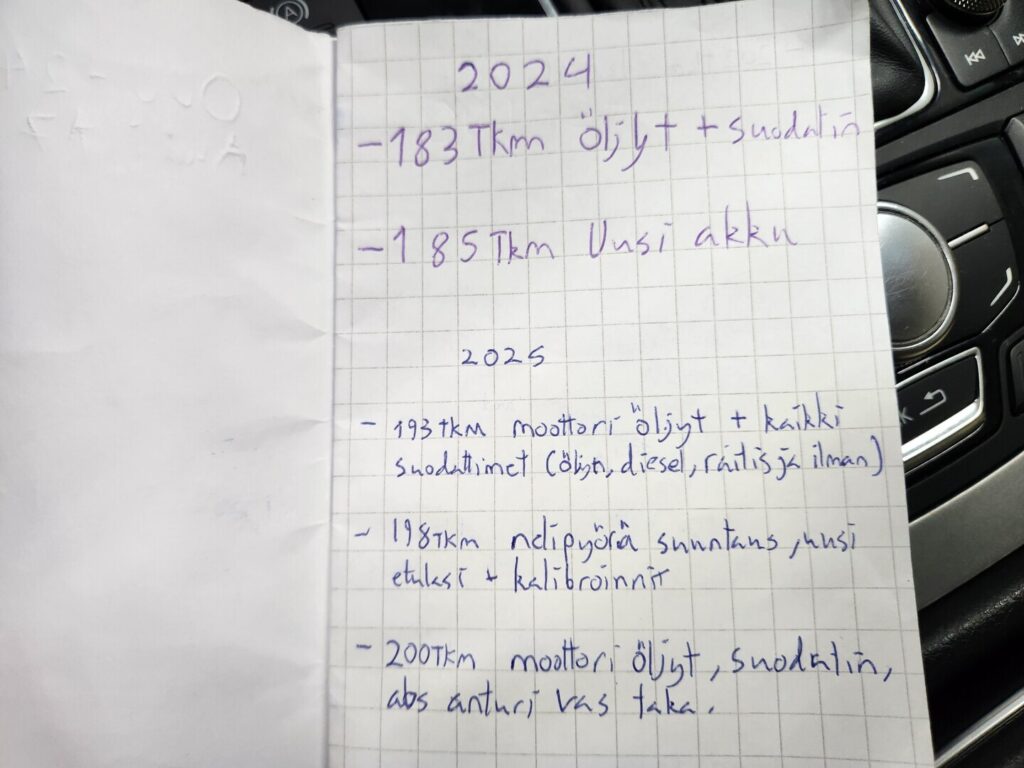 2024
- 183 Tkm Öljyt + suodatin
- 185 Tkm Uusi akku
2025
- 193 TKM moottori öljyt + kaikki
suodattimet (öljyn, diesel, raitis ja ilman)
- 198 TKM nelipyörä suuntaus, uusi
etulasi + kalibroinnit
- 200 TKM moottori öljyt, suodatin,
abs anturi vas taka.